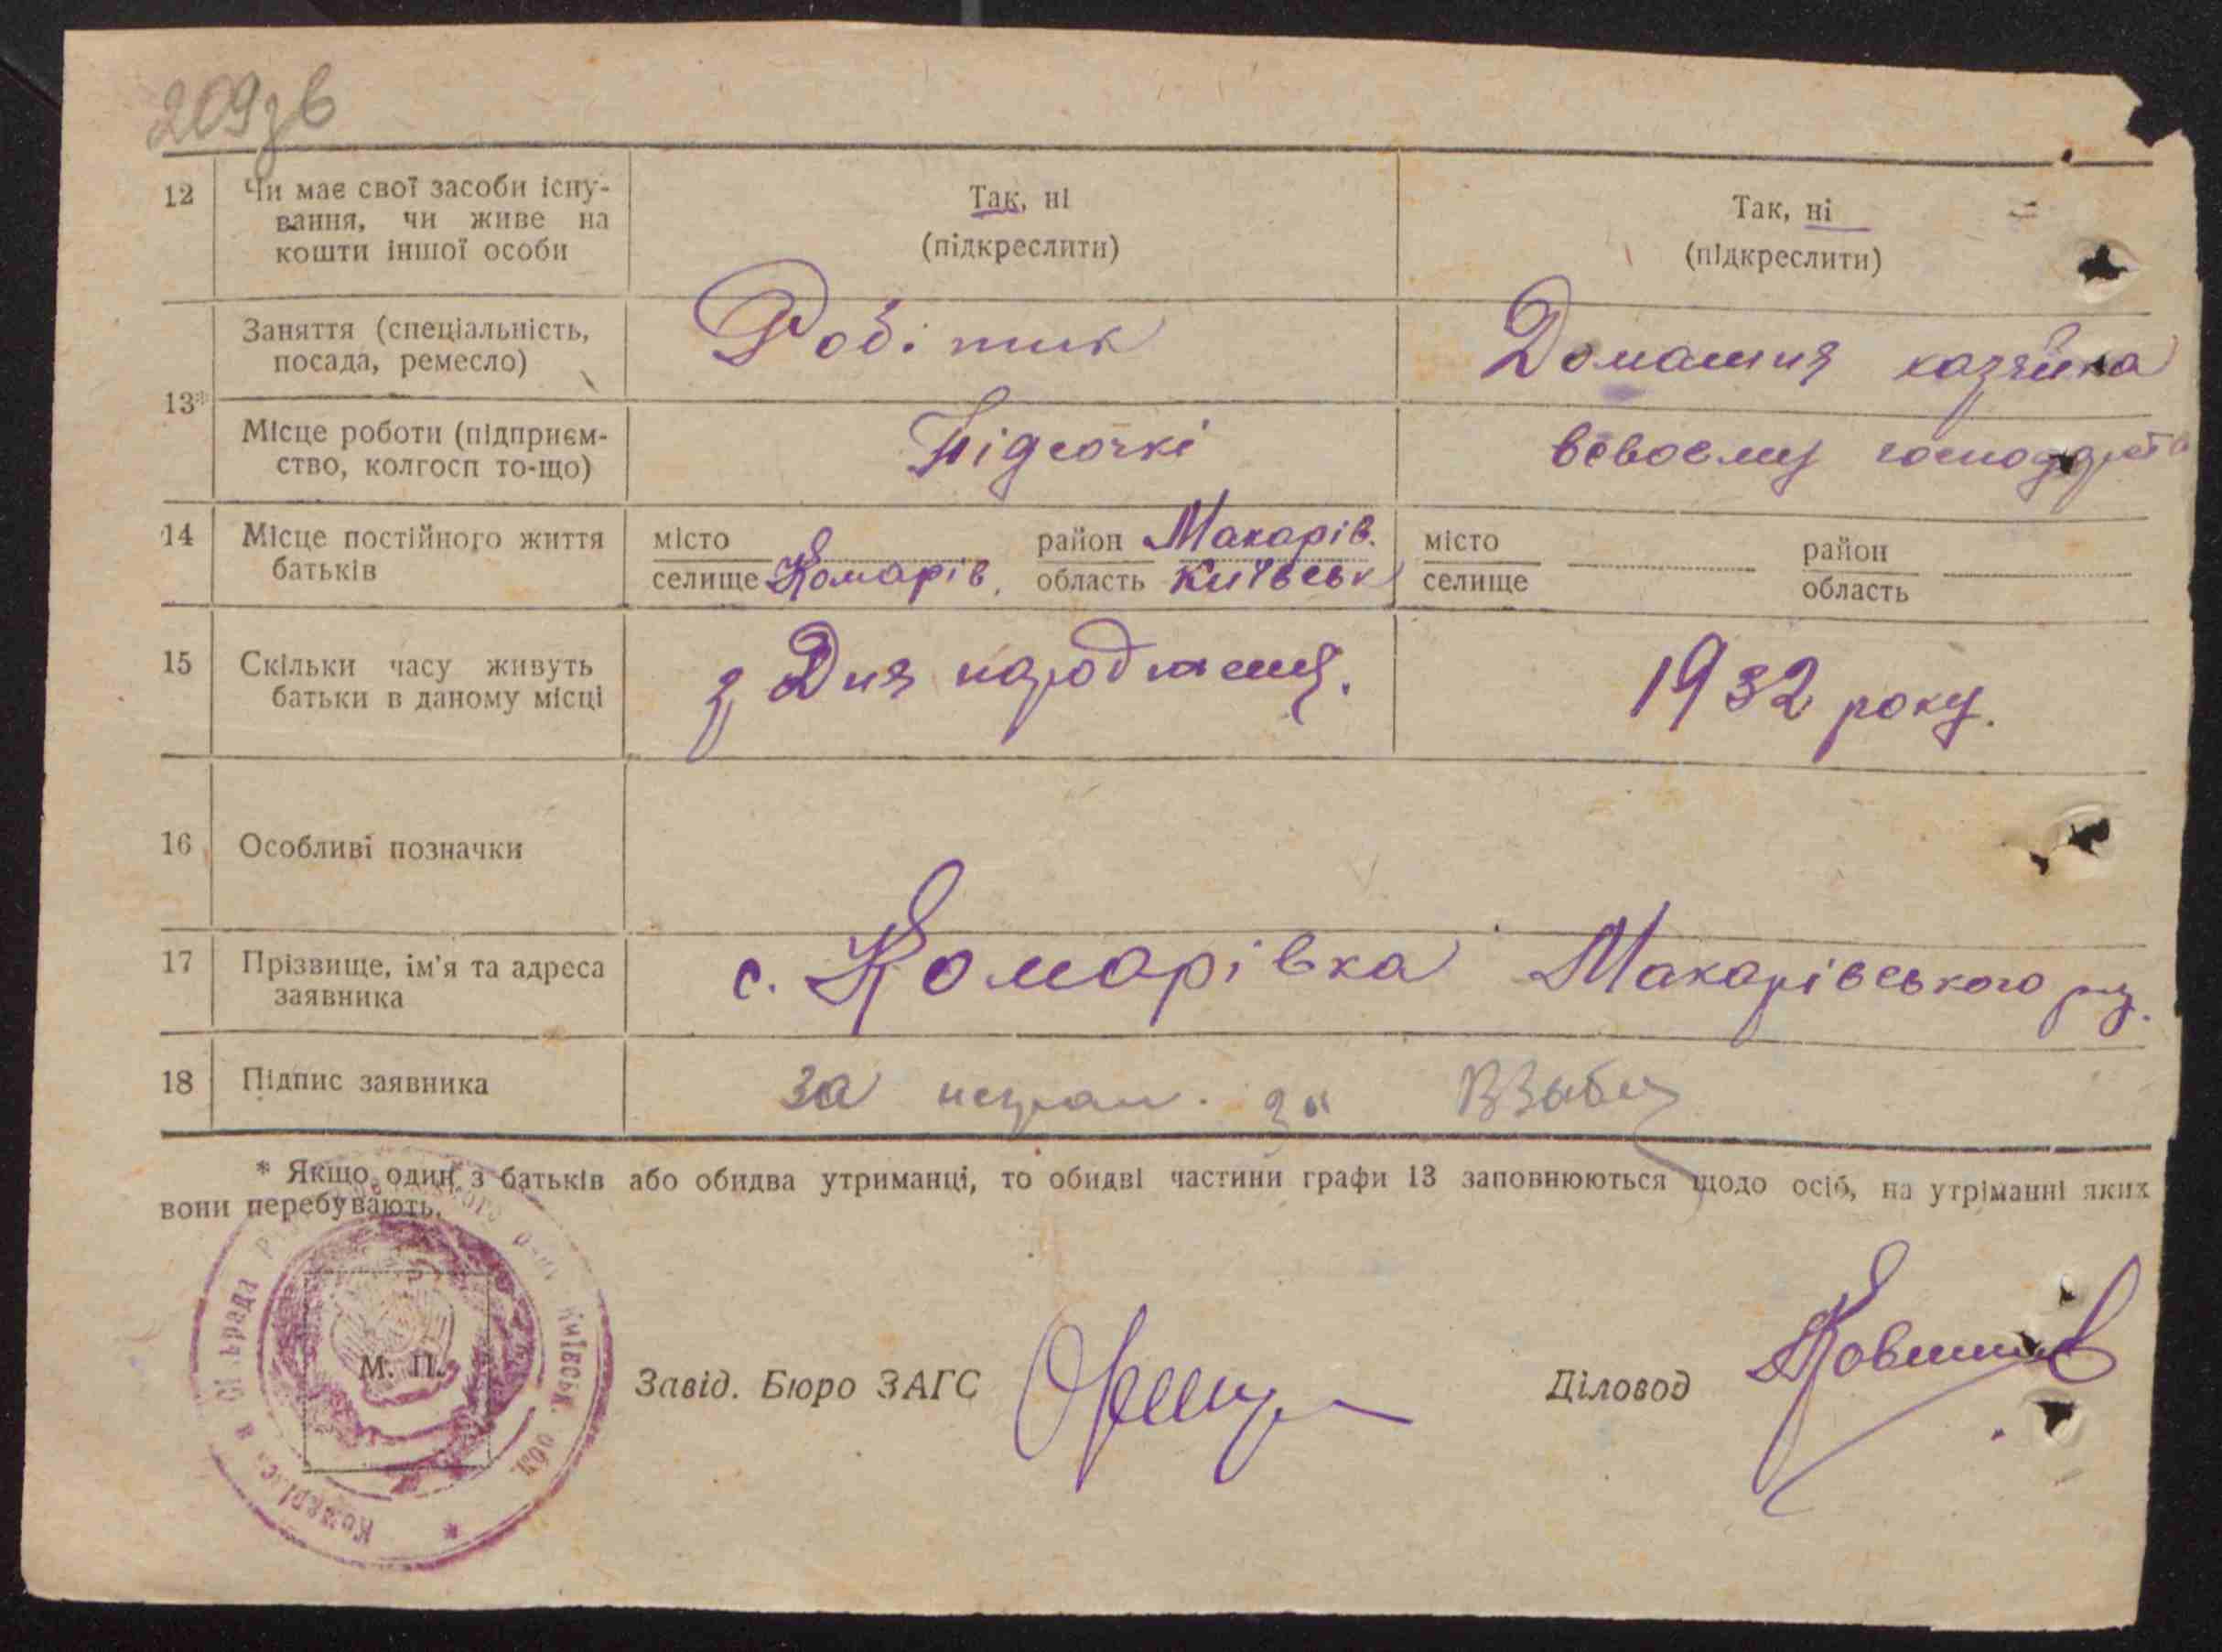 209зв
12 Чи має свої засоби існу- Так, ні Так, ні
вання, чи живе на (підкреслити) (підкреслити)
кошти іншої особи
13* Заняття (спеціальність, Робітник Домашня хазяйка
посада, ремесло)
Місце роботи (підприєм- Підсочкі вбвоєму
ство, колгосп то-що)
14 Місце постійного життя місто район Макарів. місто район
батьків селище Комарів, область Київськ селище область
15 Скільки часу живуть з Дня народження. 1932 року.
батьки в даному місці
16 Особливі позначки
17 Прізвище, ім'я та адреса с. Комарівка Макарівського
заявника
18 Підпис заявника за
* Якщо один з батьків або обидва утриманці, то обидві частини графи 13 заповнюються щодо осіб, на утріманні яких
вони перебувають.
М. П.
Завід. Бюро ЗАГС Діловод